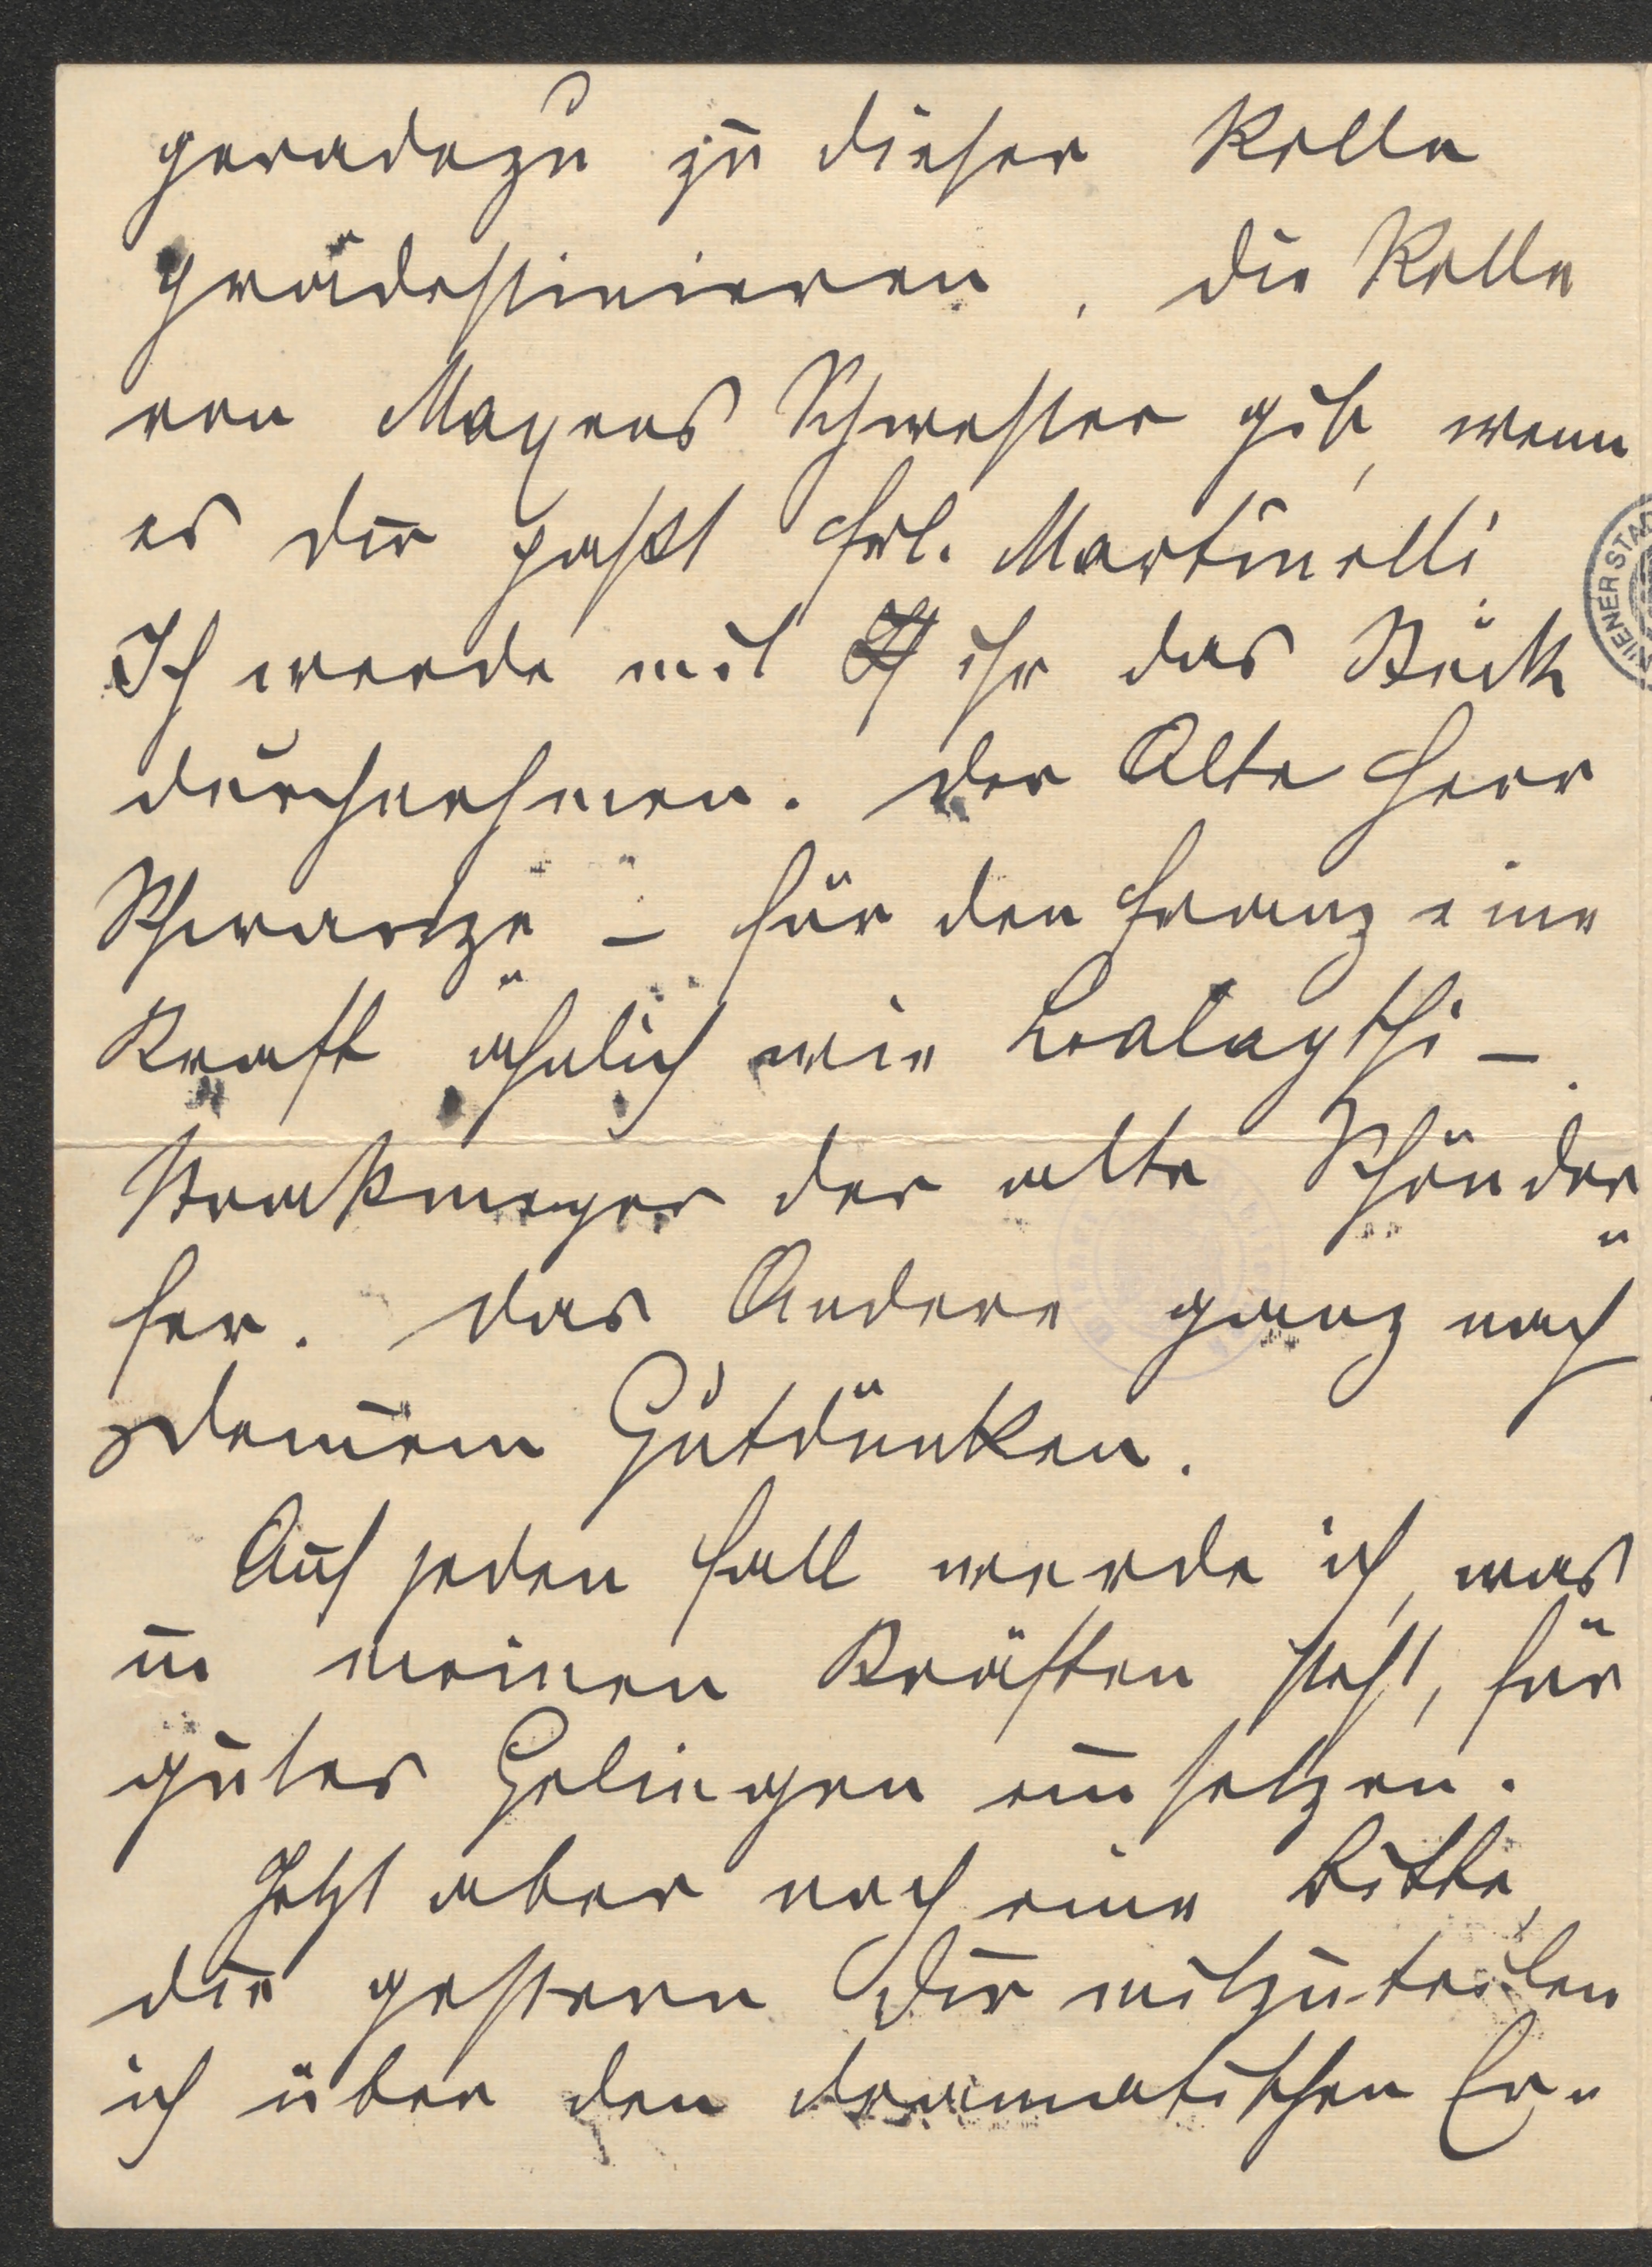 geradezu zu dieser Rolle
prädestinieren. Die Rolle
von Mayers Schwester gib, wenn
es dir paßt Frl. Martinelli
Ich werde mit ihr das Stück
durchnehmen. Der Alte Herr
Schwarze – für den Franz eine
Kraft ähnlich wie –
der alte Schönder
fer. Das Andere ganz nach
Deinem Gutdünken.
Auf jeden Fall werde ich, was
in meinen Kräften steht, für
gutes Gelingen einsetzen.
Jetzt aber noch eine Bitte,
die gestern Dir mitzuteilen
ich über den dramatischen Er-
WIENER STA